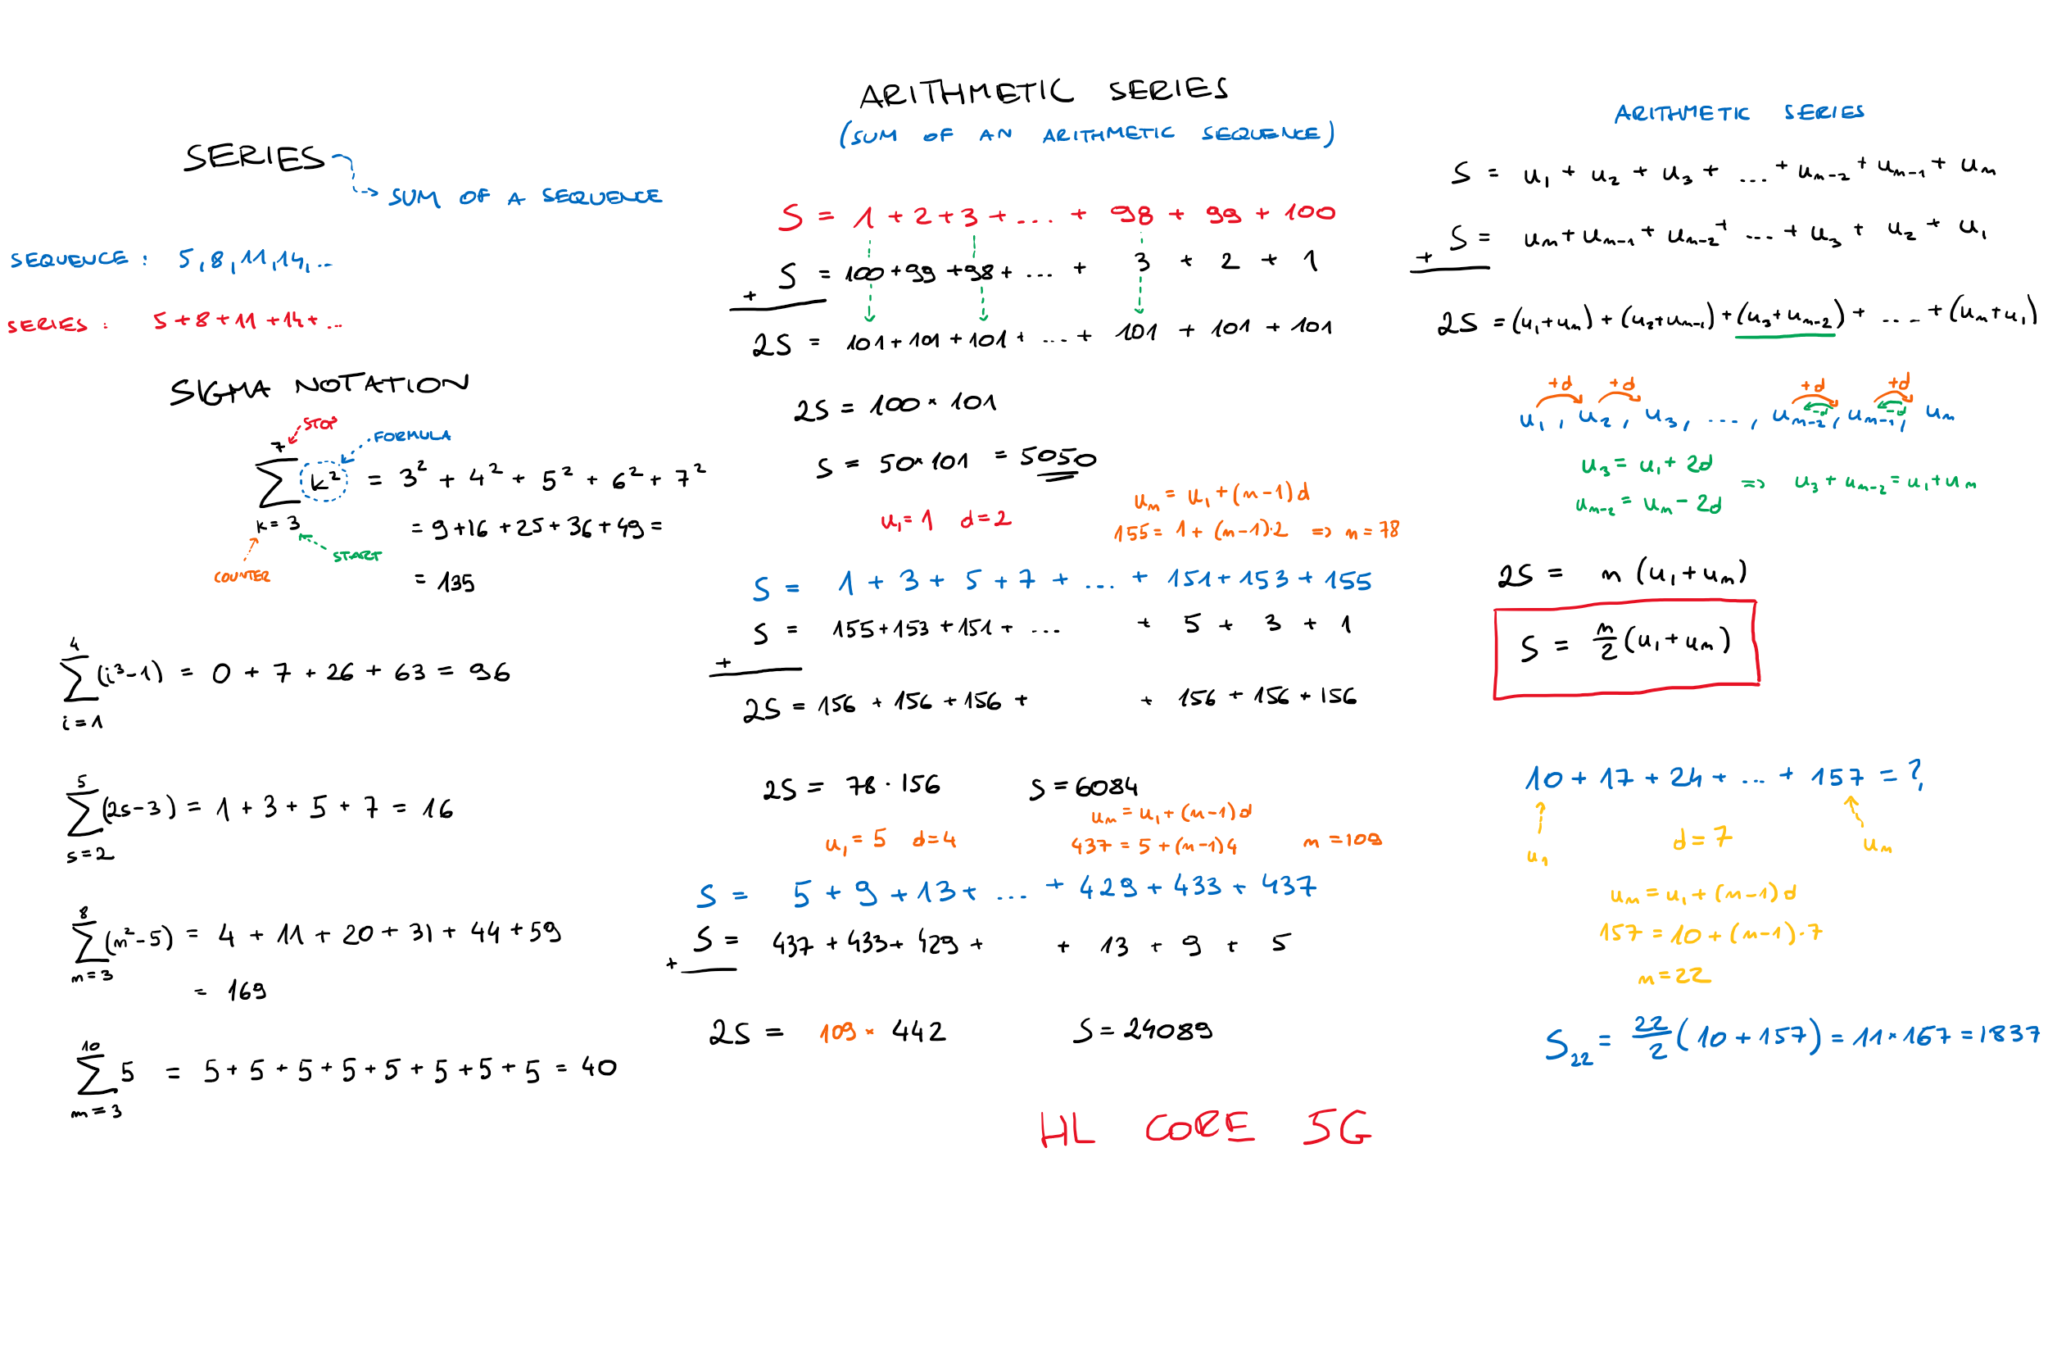 SERIES
SUM OF A SEQUENCE
SEQUENCE : 5, 8, 11, 14, ...
SERIES : 5 + 8 + 11 + 14 + ...
SIGMA NOTATION
STOP
7
FORMULA
∑ k² = 3² + 4² + 5² + 6² + 7²
k = 3
= 9 + 16 + 25 + 36 + 49 =
START
COUNTER
= 135
4
∑ (i³-1) = 0 + 7 + 26 + 63 = 96
i = 1
5
∑ (2s-3) = 1 + 3 + 5 + 7 = 16
s = 2
8
∑ (m²-5) = 4 + 11 + 20 + 31 + 44 + 59
m = 3
= 169
10
∑ 5 = 5 + 5 + 5 + 5 + 5 + 5 + 5 + 5 = 40
m = 3
ARITHMETIC SERIES
(SUM OF AN ARITHMETIC SEQUENCE)
S = 1 + 2 + 3 + ... + 98 + 99 + 100
+ S = 100 + 99 + 98 + ... + 3 + 2 + 1
2S = 101 + 101 + 101 + ... + 101 + 101 + 101
2S = 100 × 101
S = 50 × 101 = 5050
u₁ = 1 d = 2
uₙ = u₁ + (n-1)d
155 = 1 + (n-1)·2 => n = 78
S = 1 + 3 + 5 + 7 + ... + 151 + 153 + 155
+ S = 155 + 153 + 151 + ... + 5 + 3 + 1
2S = 156 + 156 + 156 + + 156 + 156 + 156
2S = 78 · 156 S = 6084
u₁ = 5 d = 4
uₙ = u₁ + (n-1)d
437 = 5 + (n-1)4 n = 109
S = 5 + 9 + 13 + ... + 429 + 433 + 437
+ S = 437 + 433 + 429 + + 13 + 9 + 5
2S = 109 × 442 S = 24089
HL CORE 5G
ARITHMETIC SERIES
S = u₁ + u₂ + u₃ + ... + uₙ₋₂ + uₙ₋₁ + uₙ
+ S = uₙ + uₙ₋₁ + uₙ₋₂ + ... + u₃ + u₂ + u₁
2S = (u₁+uₙ) + (u₂+uₙ₋₁) + (u₃+uₙ₋₂) + .... + (uₙ+u₁)
+d +d +d +d
-d -d
u₁, u₂, u₃, ..., uₙ₋₂, uₙ₋₁, uₙ
u₃ = u₁ + 2d
uₙ₋₂ = uₙ - 2d
=> u₃ + uₙ₋₂ = u₁ + uₙ
2S = n (u₁+uₙ)
S = n/2 (u₁+uₙ)
10 + 17 + 24 + ... + 157 = ?
u₁
d = 7
uₙ
uₙ = u₁ + (n-1)d
157 = 10 + (n-1)·7
n = 22
S₂₂ = 22/2 (10 + 157) = 11 × 167 = 1837